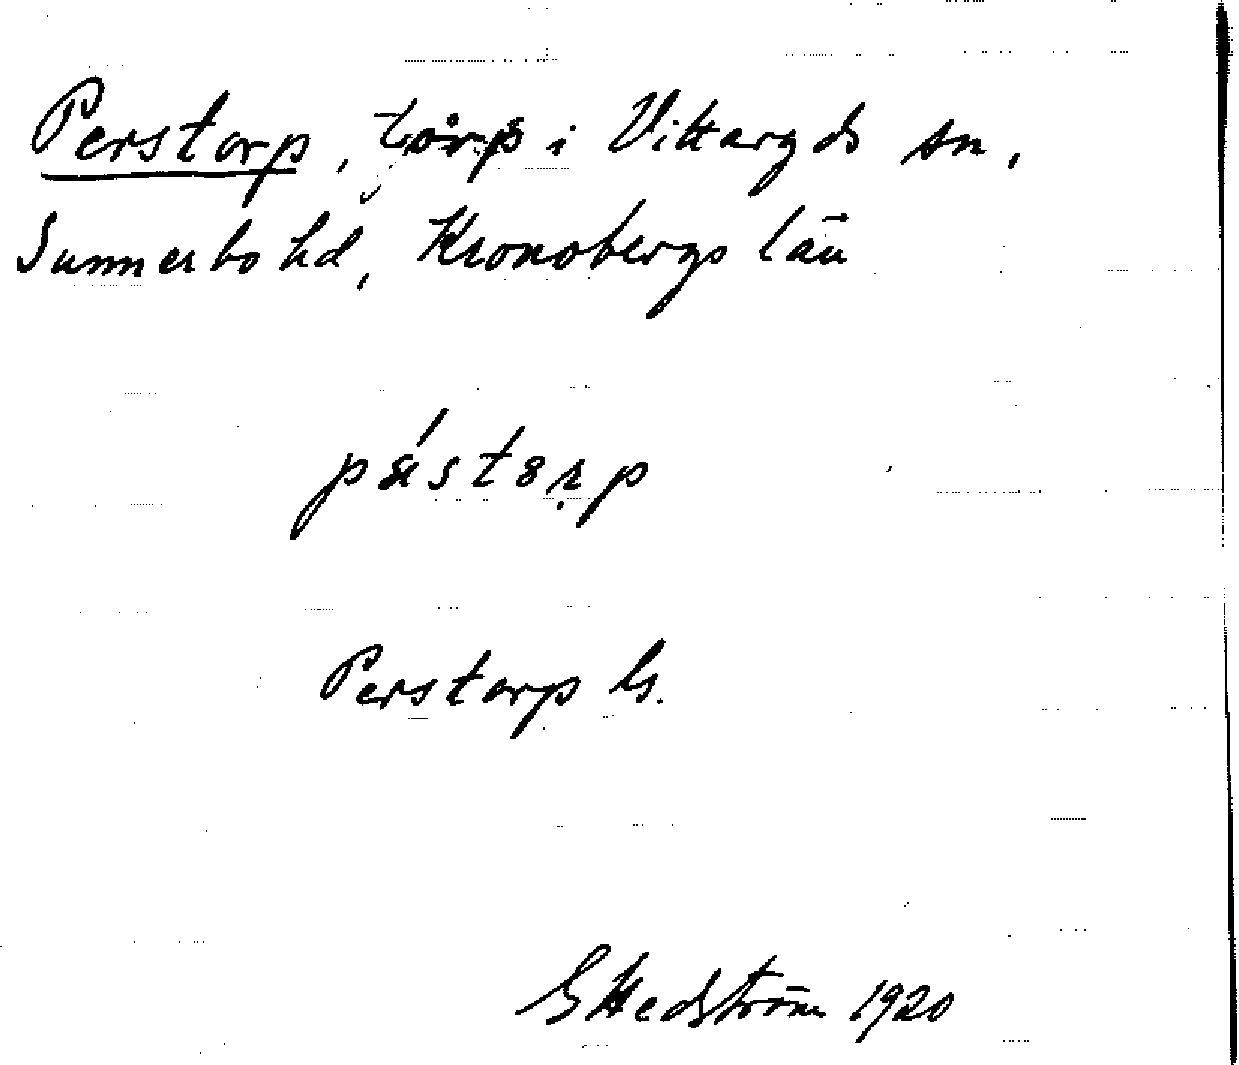 Perstorp, torp i Vittaryds sn,
Sunnerbo hd, Kronobergs län
pǽstørp
Perstorp Gs.
G Hedström 1920